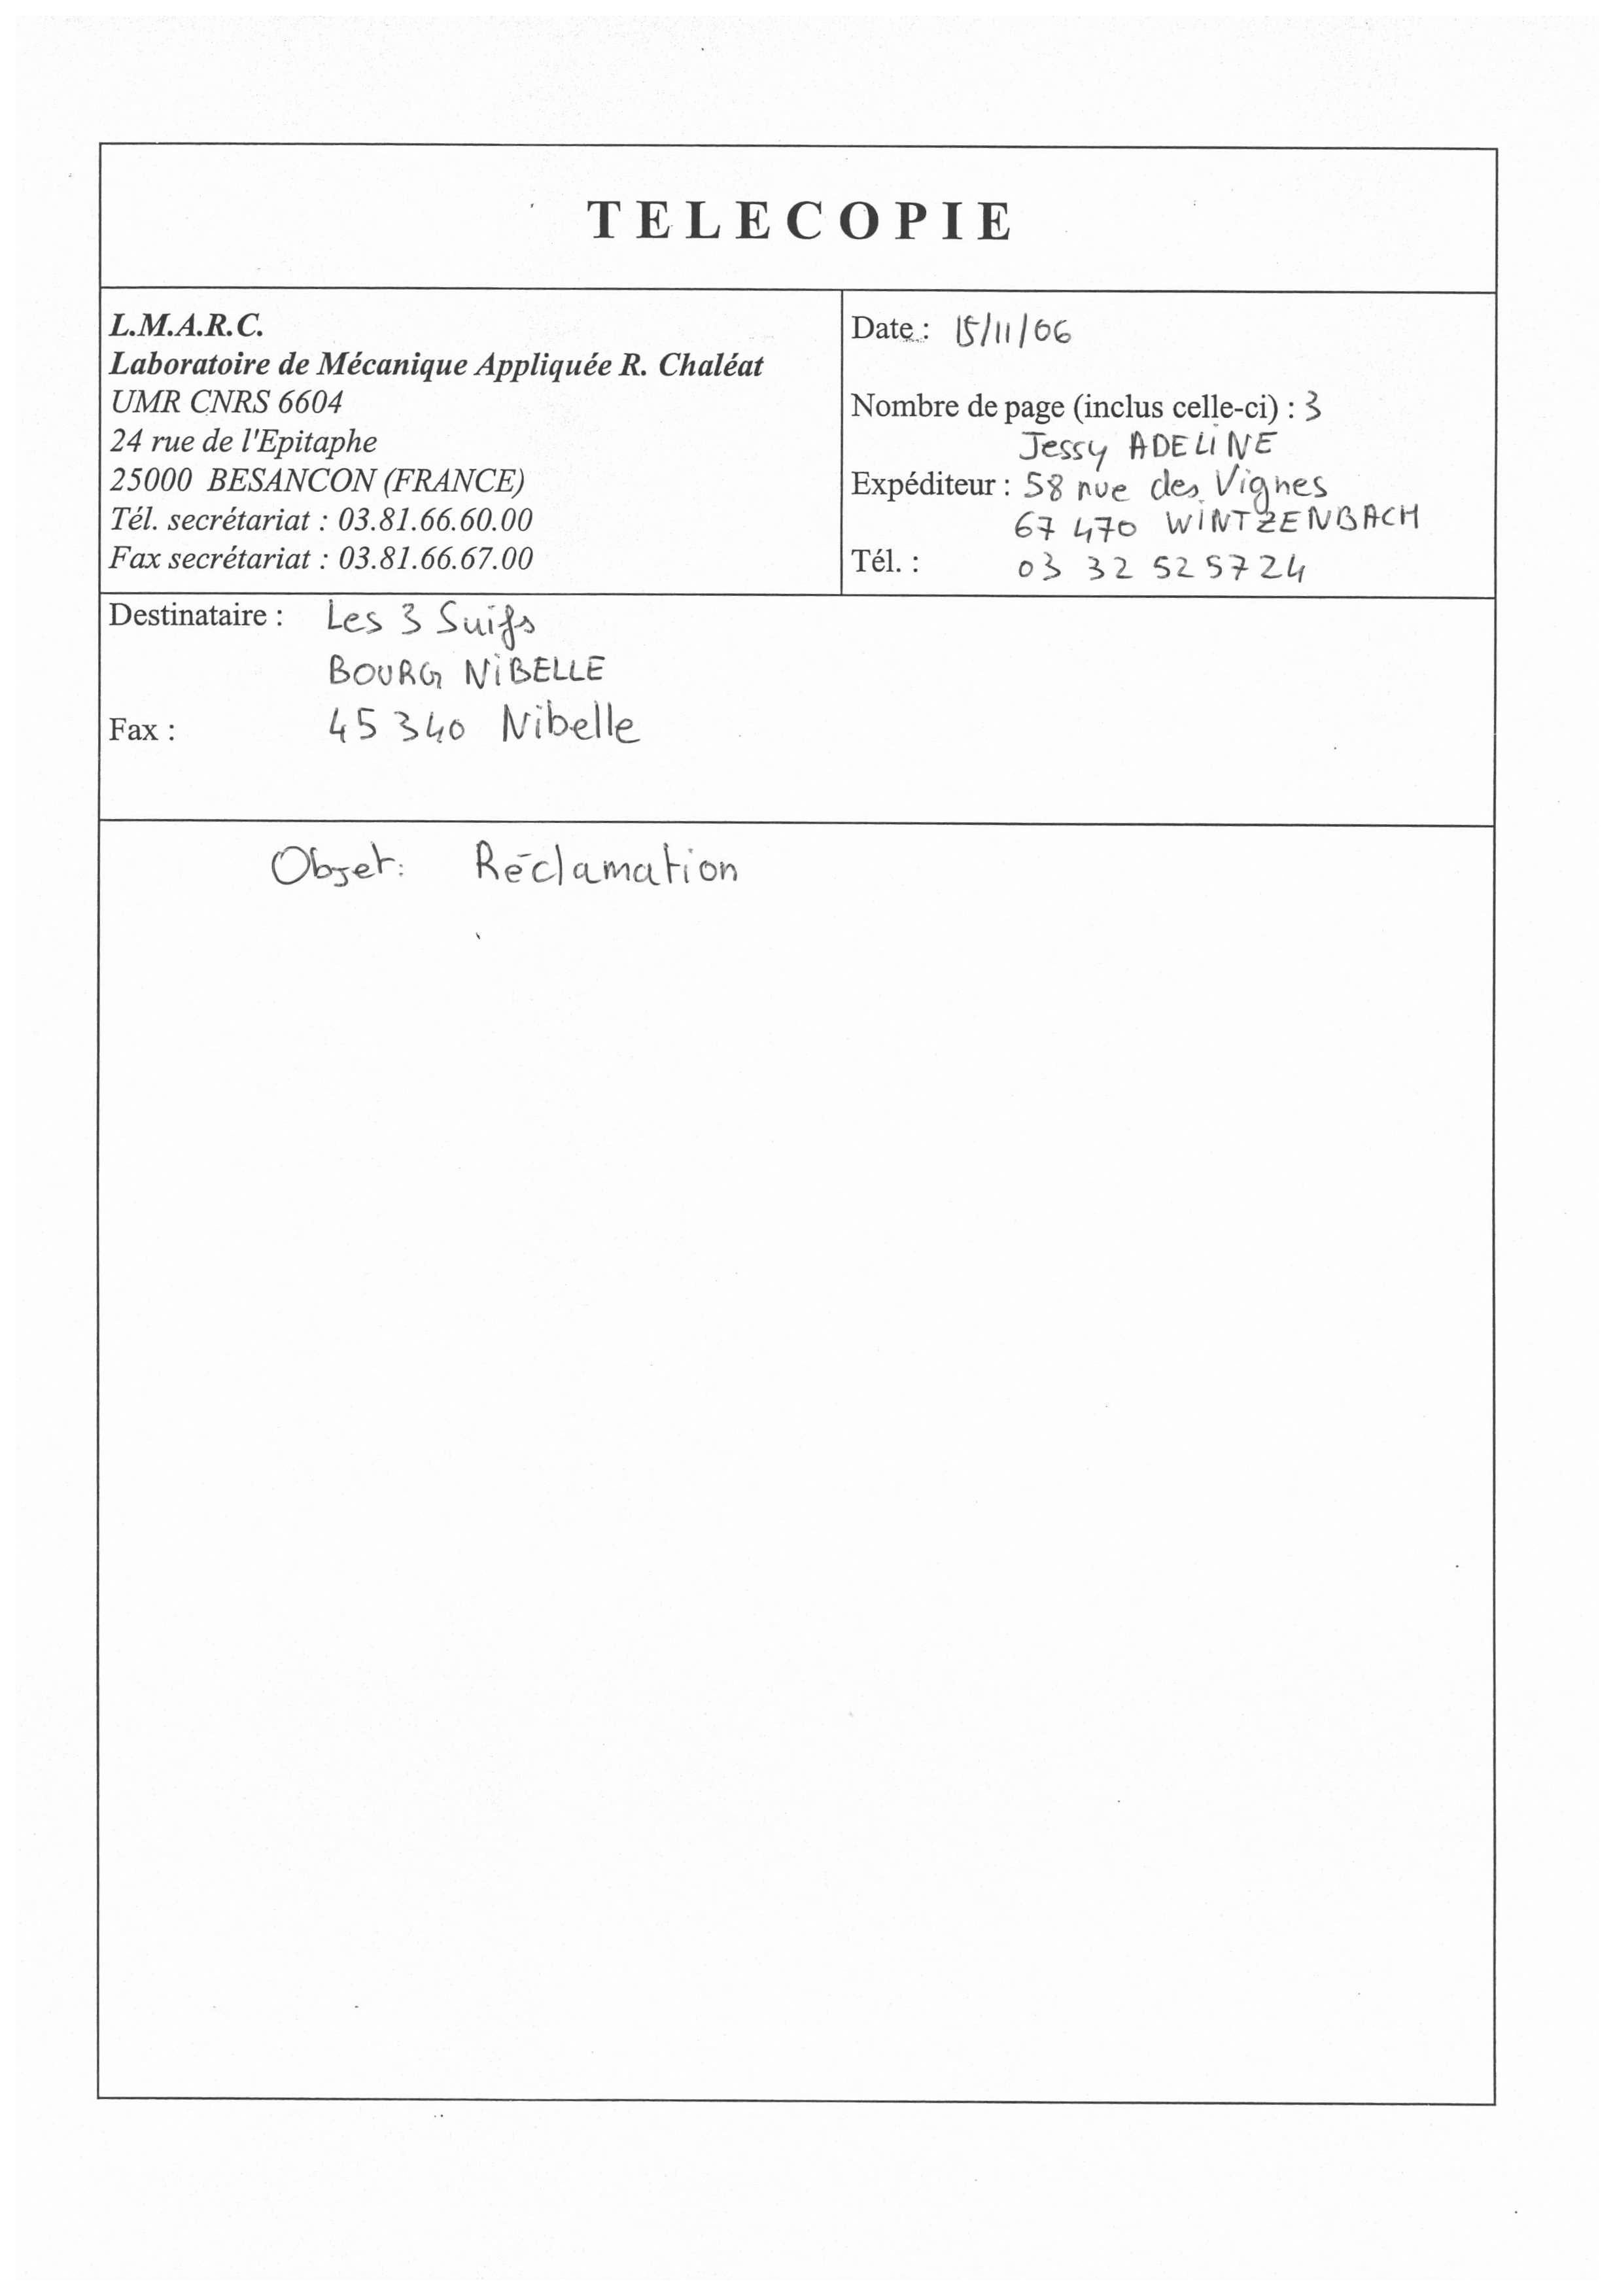 TELECOPIE
L.M.A.R.C.
Laboratoire de Mécanique Appliquée R. Chaléat
UMR CNRS 6604
24 rue de l'Epitaphe
25000 BESANCON (FRANCE)
Tél. secrétariat : 03.81.66.60.00
Fax secrétariat : 03.81.66.67.00
Date : 15/11/06
Nombre de page (inclus celle-ci) : 3
Jessy ADELINE
Expéditeur : 58 rue des Vignes
67 470 WINTZENBACH
Tél. : 03 32 52 57 24
Destinataire : Les 3 Suifs
BOURG NIBELLE
Fax : 45 340 Nibelle
Objet : Réclamation